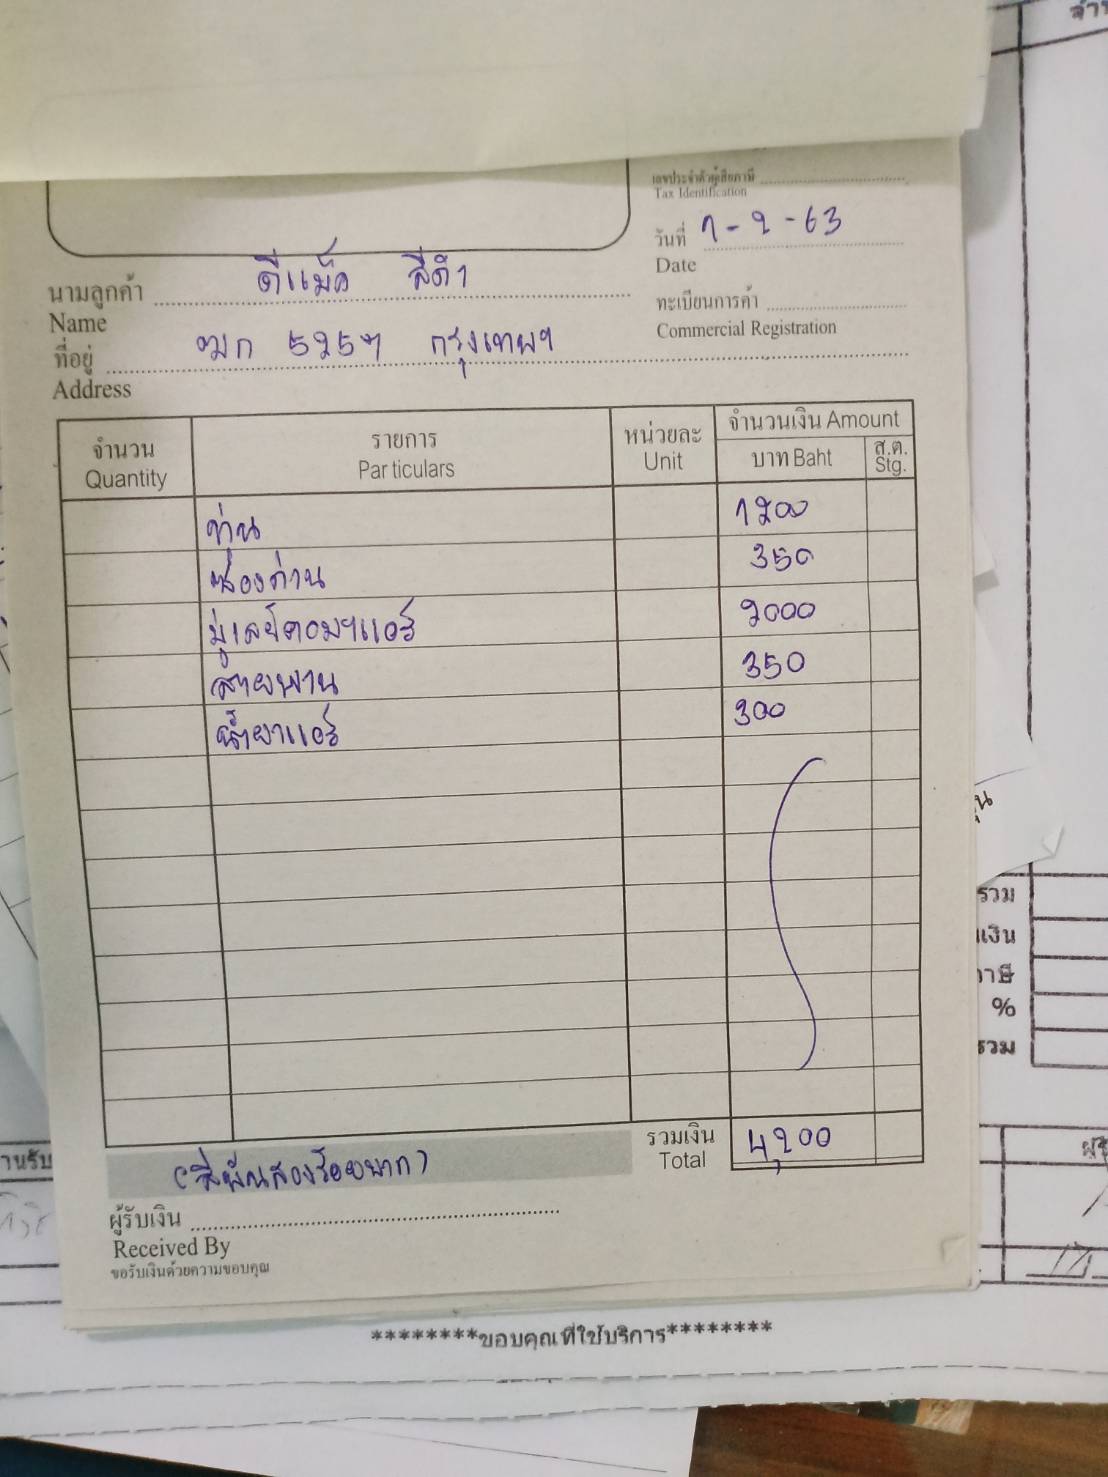 จำน
เลขประจำตัวผู้เสียภาษี
Tax Identification
วันที่ 1-2-63
Date
นามลูกค้า ดีแม็ค สีดำ
Name
ทะเบียนการค้า
Commercial Registration
ที่อยู่ ฒก 5257 กรุงเทพฯ
Address
จำนวน รายการ หน่วยละ จำนวนเงิน Amount
Quantity Particulars Unit บาท Baht ส.ต. Stg.
ทุ่น 1200
ซองถ่าน 350
มู่เลย์คอมฯแอร์ 2000
สายพาน 350
น้ำยาแอร์ 300
รวมเงิน 4,200
Total
(สี่พันสองร้อยบาท)
ผู้รับเงิน
Received By
ขอรับเงินด้วยความขอบคุณ
รวม
เงิน
าษี
%
รวม
านรับ
********ขอบคุณที่ใช้บริการ********